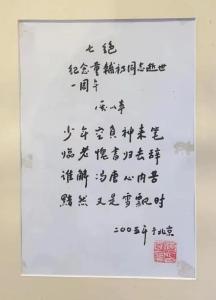 七绝
纪念童辅初同志逝世
一周年
少年空负神来笔
临老愧书归去辞
谁解冯唐心内苦
黯然又是雪飘时
二〇〇五年于北京